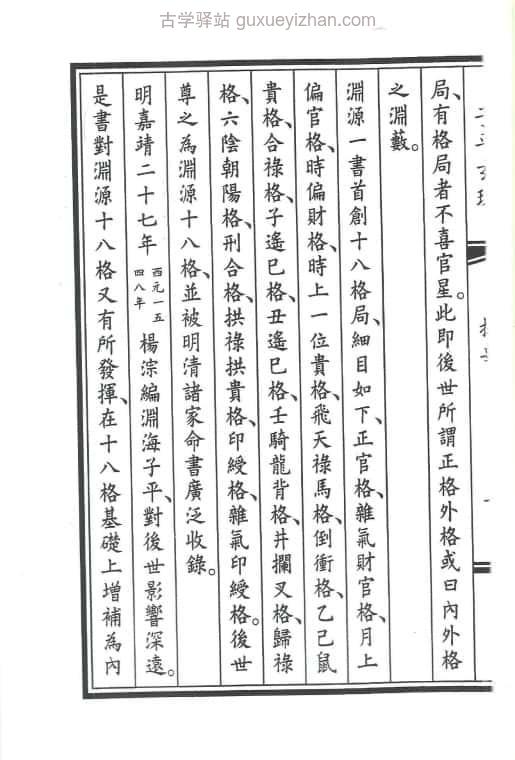 古学驿站 guxueyizhan.com
局、有格局者不喜官星。此即後世所謂正格外格或曰內外格
之淵藪。
淵源一書首創十八格局、細目如下、正官格、雜氣財官格、月上
偏官格、時偏財格、時上一位貴格、飛天祿馬格、倒衝格、乙己鼠
貴格、合祿格、子遙巳格、丑遙巳格、壬騎龍背格、井攔叉格、歸祿
格、六陰朝陽格、刑合格、拱祿拱貴格、印綬格、雜氣印綬格。後世
尊之為淵源十八格、並被明清諸家命書廣泛收錄。
明嘉靖二十七年西元一五四八年楊淙編淵海子平、對後世影響深遠。
是書對淵源十八格又有所發揮、在十八格基礎上增補為內